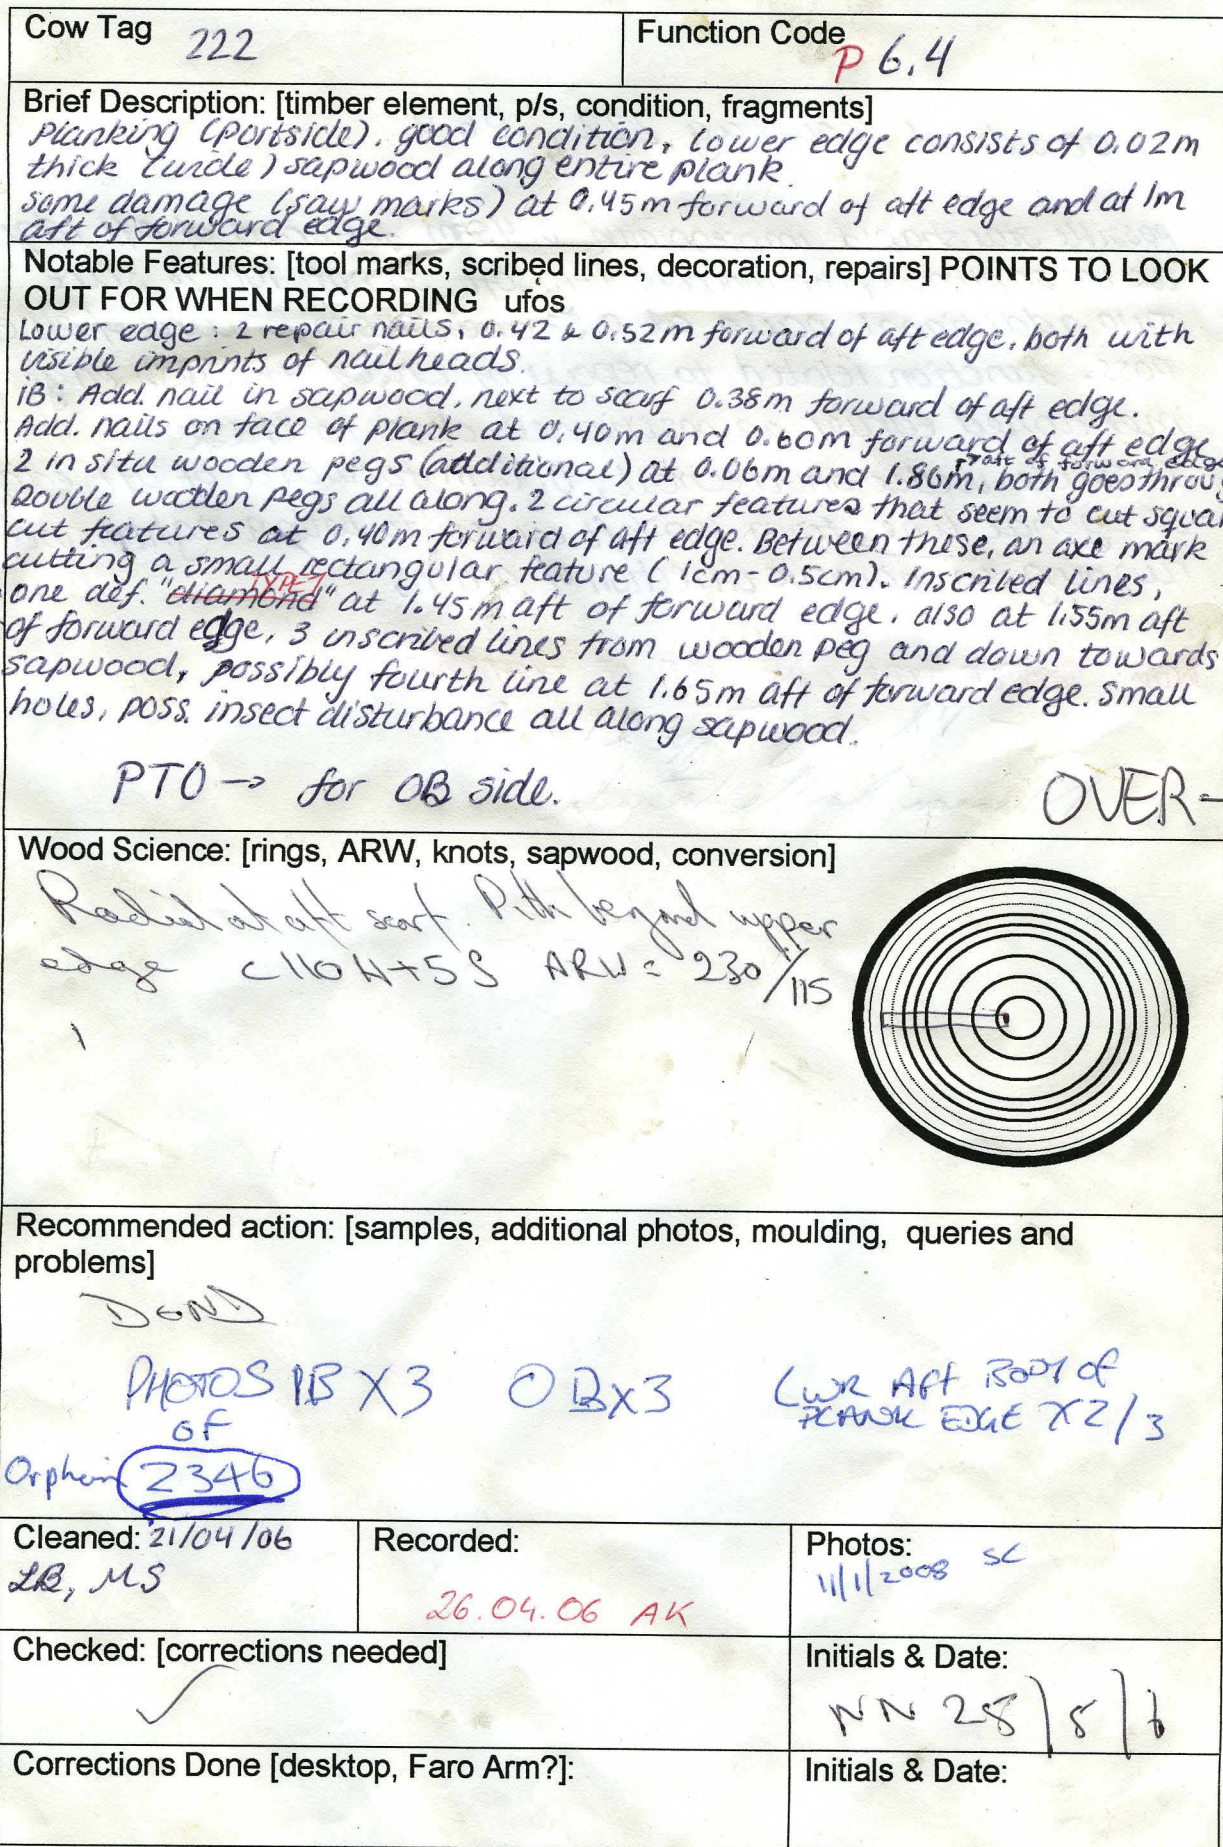 Cow Tag 222
Function Code P 6.4
Brief Description: [timber element, p/s, condition, fragments]
Planking (portside). good condition, lower edge consists of 0.02m
thick (wide) sapwood along entire plank.
some damage (saw marks) at 0.45m forward of aft edge and at 1m
aft of forward edge.
Notable Features: [tool marks, scribed lines, decoration, repairs] POINTS TO LOOK
OUT FOR WHEN RECORDING ufos
Lower edge: 2 repair nails, 0.42 & 0.52m forward of aft edge, both with
visible imprints of nailheads.
iB: Add. nail in sapwood, next to scarf 0.38m forward of aft edge.
Add. nails on face of plank at 0,40m and 0.60m forward of aft edge
2 in situ wooden pegs (additional) at 0.06m and 1.86m, both goes throug
aft of forward edge
Double wooden pegs all along. 2 circular features that seem to cut squar
cut features at 0,40m forward of aft edge. Between these, an axe mark
cutting a small rectangular feature (1cm-0.5cm). Inscribed lines,
TYPE 1
one def. "diamond" at 1.45m aft of forward edge, also at 1.55m aft
of forward edge, 3 inscribed lines from wooden peg and down towards
sapwood, possibly fourth line at 1.65m aft of forward edge. Small
holes, poss. insect disturbance all along sapwood.
PTO → for OB side.
OVER-
Wood Science: [rings, ARW, knots, sapwood, conversion]
Radial at aft scarf. Pith beyond upper
edge c110H+5S ARW = 230/115
Recommended action: [samples, additional photos, moulding, queries and
problems]
DEND
PHOTOS IB X3 OBX3 LWR AFT BODY OF
PLANK EDGE X2/3
OF
Orphan 2346
Cleaned: 21/04/06
LB, MS
Recorded:
26.04.06 AK
Photos:
11/1/2008 SC
Checked: [corrections needed]
✓
Initials & Date:
NN 28/8/6
Corrections Done [desktop, Faro Arm?]:
Initials & Date: